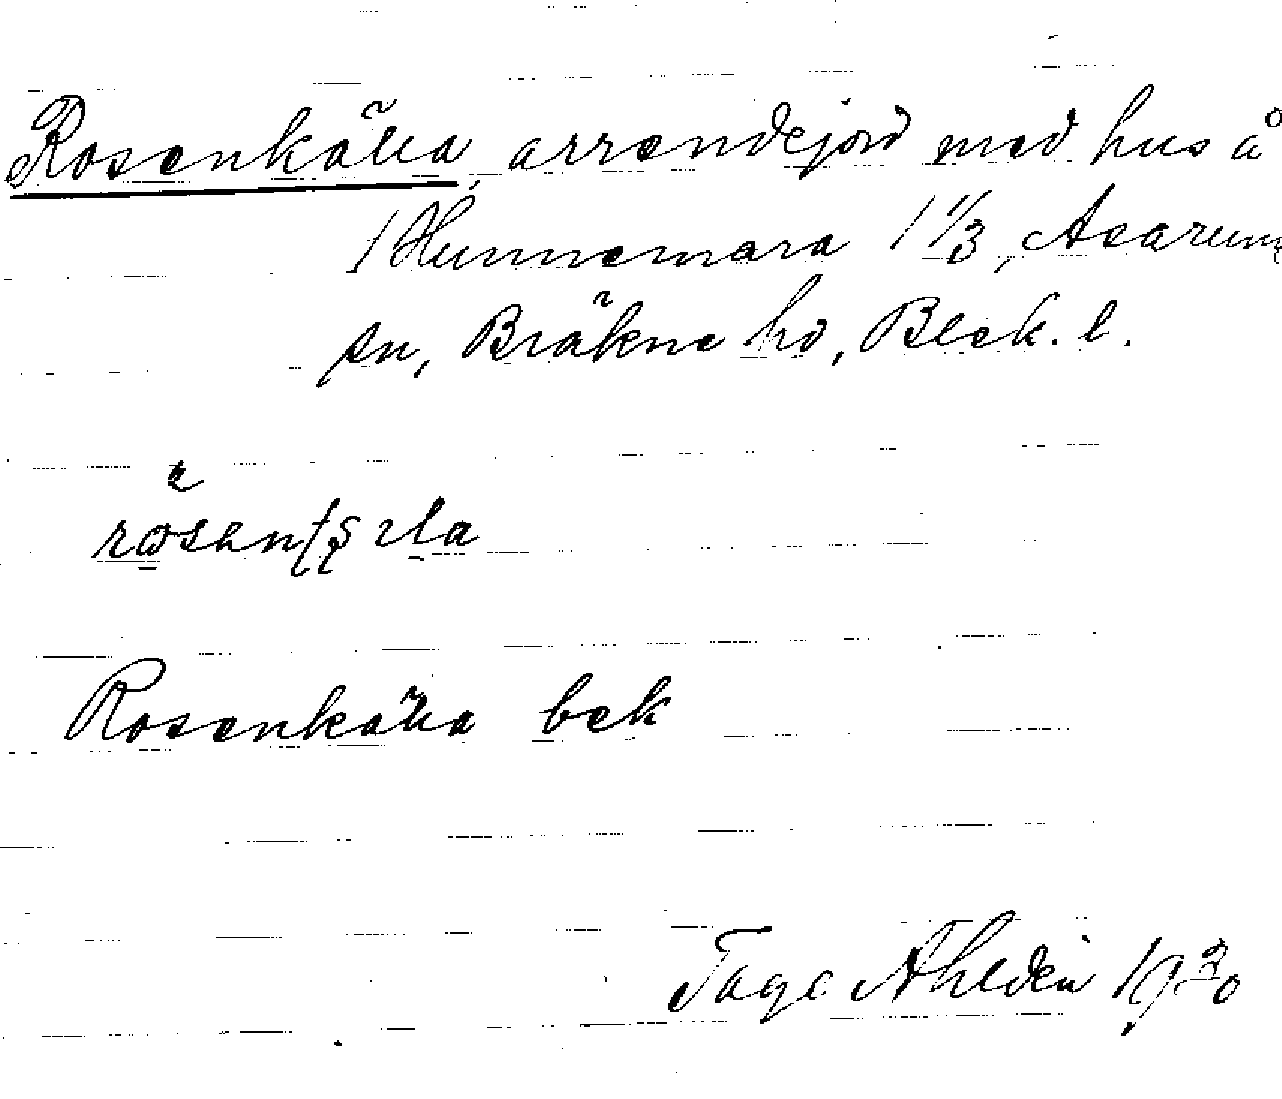 Rosenkälla, arrendejord med hus å
1 Hunnemara 1 1/3, Asarums
sn, Bräkne hd, Blek. l.
Rosenkälla bek
Tage Ahldén 1930